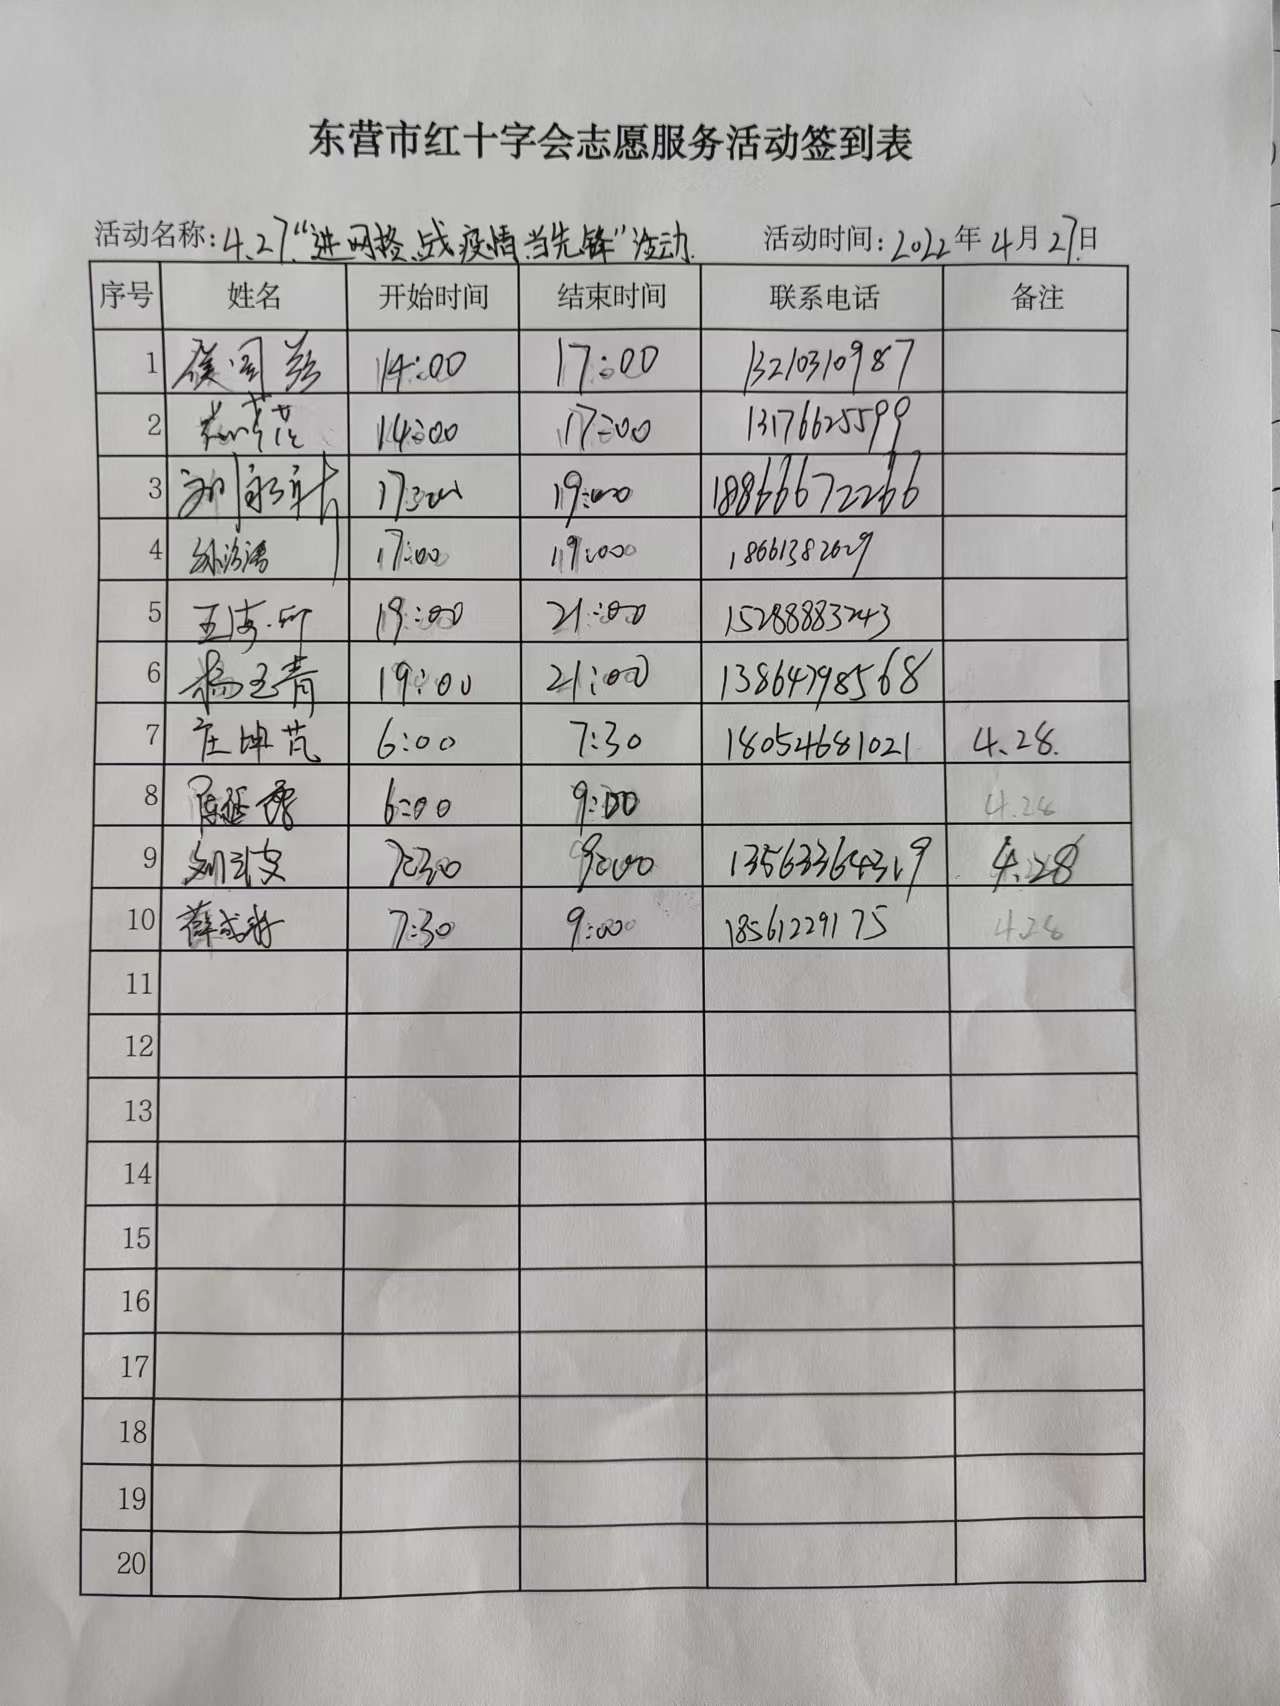 东营市红十字会志愿服务活动签到表
活动名称:4.27."进网格、战疫情、当先锋"活动 活动时间:2022年4月27日
序号 姓名 开始时间 结束时间 联系电话 备注
1 14:00 17:00 13210310987
2 14:00 17:00 13176625599
3 刘 19:00 18866672266
4 17:00 19:00 18661382629
5 王海 19:00 21:00 15288883243
6 杨玉青 19:00 21:00 13864798568
7 庄坤芃 6:00 7:30 18054681021 4.28.
8 陈延 6:00 9:00 4.28
9 刘 7:30 9:00 4.28
10 薛 7:30 9:00 18561229175 4.28
11
12
13
14
15
16
17
18
19
20